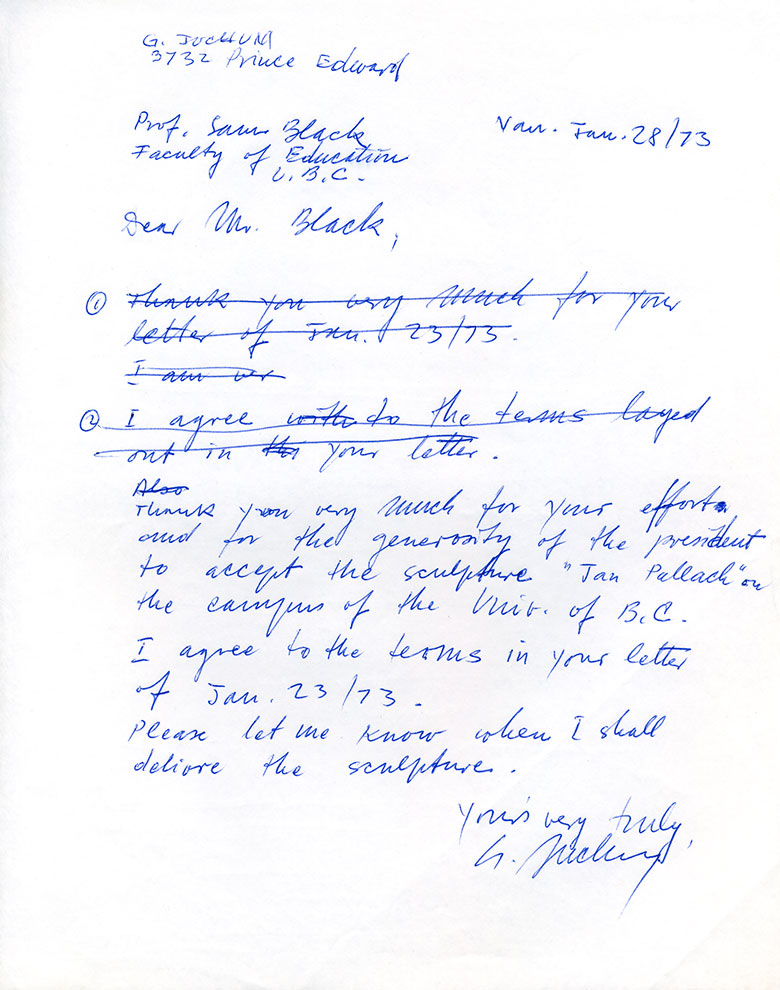 G. JOCHUM
3732 Prince Edward
Prof. Sam Black
Van. Jan. 28/73
Faculty of Education
U.B.C.
Dear Mr. Black,
① Thank you very much for your
letter of Jan. 23/73.
I am ver
② I agree with to the terms layed
out in thi your letter.
Also
Thank you very much for your efforts
and for the generosity of the president
to accept the sculpture "Jan Pallach" on
the campus of the Univ. of B.C.
I agree to the terms in your letter
of Jan. 23/73.
Please let me know when I shall
deliore the sculpture.
Your's very truly,
G. Jochum